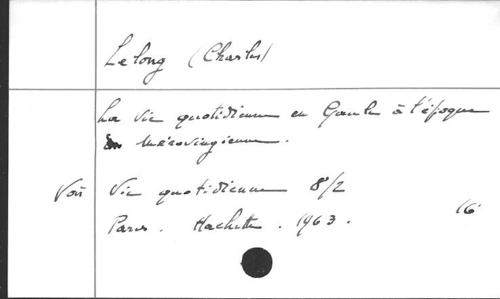 Lelong (Charles)
La Vie quotidienne en Gaule à l'époque
Mérovingienne.
Voir Vie quotidienne 8/2
Paris. Hachette. 1963. 16